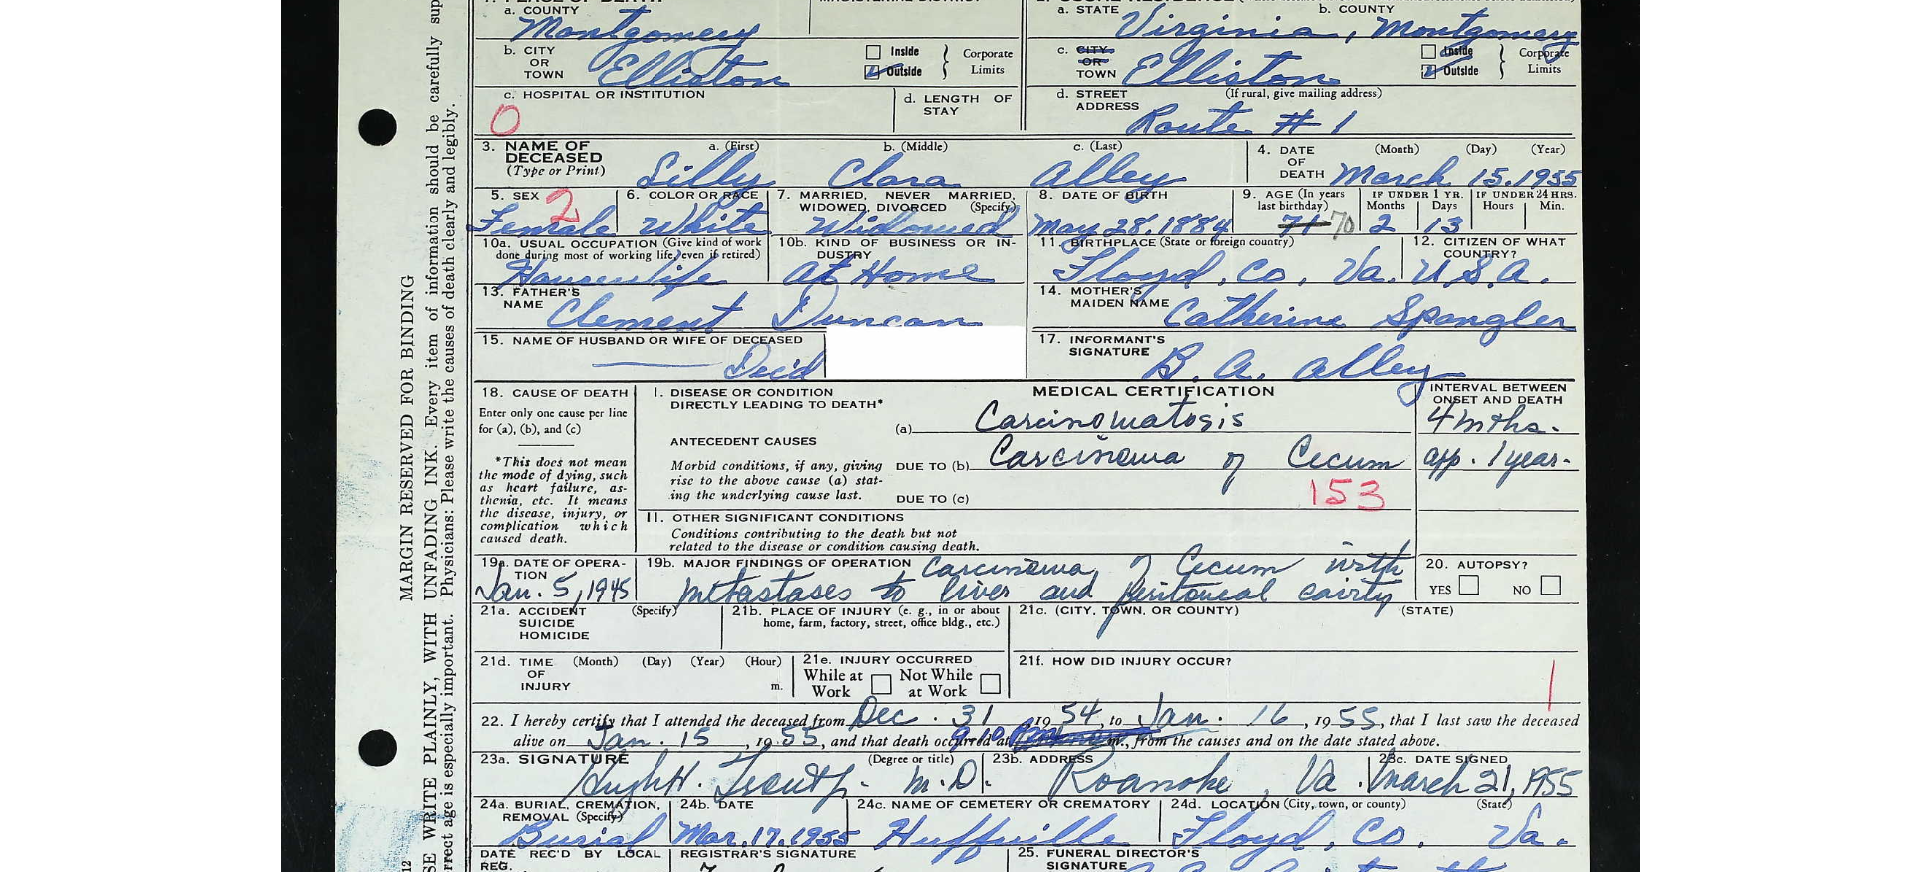 a. COUNTY
Montgomery
a. STATE b. COUNTY
Virginia, Montgomery
b. CITY OR TOWN Elliston Inside Outside Corporate Limits
c. CITY OR TOWN Elliston Inside Outside Corporate Limits
c. HOSPITAL OR INSTITUTION
0
d. LENGTH OF STAY
d. STREET ADDRESS (If rural, give mailing address)
Route # 1
3. NAME OF DECEASED (Type or Print) a. (First) b. (Middle) c. (Last)
Lilly Clara Alley
4. DATE OF DEATH (Month) (Day) (Year)
March 15, 1955
5. SEX 2
Female
6. COLOR OR RACE
White
7. MARRIED, NEVER MARRIED, WIDOWED, DIVORCED (Specify)
Widowed
8. DATE OF BIRTH
May 28, 1884
9. AGE (In years last birthday) IF UNDER 1 YR. Months Days IF UNDER 24 HRS. Hours Min.
71 70 2 13
10a. USUAL OCCUPATION (Give kind of work done during most of working life, even if retired)
Housewife
10b. KIND OF BUSINESS OR INDUSTRY
At Home
11. BIRTHPLACE (State or foreign country)
Floyd, Co, Va.
12. CITIZEN OF WHAT COUNTRY?
U.S.A.
13. FATHER'S NAME
Clement Duncan
14. MOTHER'S MAIDEN NAME
Catherine Spangler
15. NAME OF HUSBAND OR WIFE OF DECEASED
Dec'd
17. INFORMANT'S SIGNATURE
B. A. Alley
18. CAUSE OF DEATH
Enter only one cause per line for (a), (b), and (c)
*This does not mean the mode of dying, such as heart failure, asthenia, etc. It means the disease, injury, or complication which caused death.
MEDICAL CERTIFICATION
I. DISEASE OR CONDITION DIRECTLY LEADING TO DEATH*
(a) Carcinomatosis
INTERVAL BETWEEN ONSET AND DEATH
4 mths.
ANTECEDENT CAUSES
Morbid conditions, if any, giving rise to the above cause (a) stating the underlying cause last.
DUE TO (b) Carcinoma of Cecum
app. 1 year.
DUE TO (c)
153
II. OTHER SIGNIFICANT CONDITIONS
Conditions contributing to the death but not related to the disease or condition causing death.
19a. DATE OF OPERATION
Jan. 5, 1945
19b. MAJOR FINDINGS OF OPERATION Carcinoma of Cecum with
metastases to liver and peritoneal cavity
20. AUTOPSY?
YES NO
21a. ACCIDENT SUICIDE HOMICIDE (Specify)
21b. PLACE OF INJURY (e. g., in or about home, farm, factory, street, office bldg., etc.)
21c. (CITY, TOWN, OR COUNTY) (STATE)
21d. TIME OF INJURY (Month) (Day) (Year) (Hour) m.
21e. INJURY OCCURRED
While at Work Not While at Work
21f. HOW DID INJURY OCCUR?
1
22. I hereby certify that I attended the deceased from Dec. 31, 1954, to Jan. 16, 1955, that I last saw the deceased
alive on Jan. 15, 1955, and that death occurred at 9:10 m., from the causes and on the date stated above.
23a. SIGNATURE (Degree or title)
Hugh H. Trout Jr. M.D.
23b. ADDRESS
Roanoke, Va.
23c. DATE SIGNED
March 21, 1955
24a. BURIAL, CREMATION, REMOVAL (Specify)
Burial
24b. DATE
Mar. 17, 1955
24c. NAME OF CEMETERY OR CREMATORY
Huffville
24d. LOCATION (City, town, or county) (State)
Floyd, Co. Va.
DATE REC'D BY LOCAL REG.
REGISTRAR'S SIGNATURE
25. FUNERAL DIRECTOR'S SIGNATURE
MARGIN RESERVED FOR BINDING
WRITE PLAINLY, WITH UNFADING INK. Every item of information should be carefully
age is especially important. Physicians: Please write the causes of death clearly and legibly.